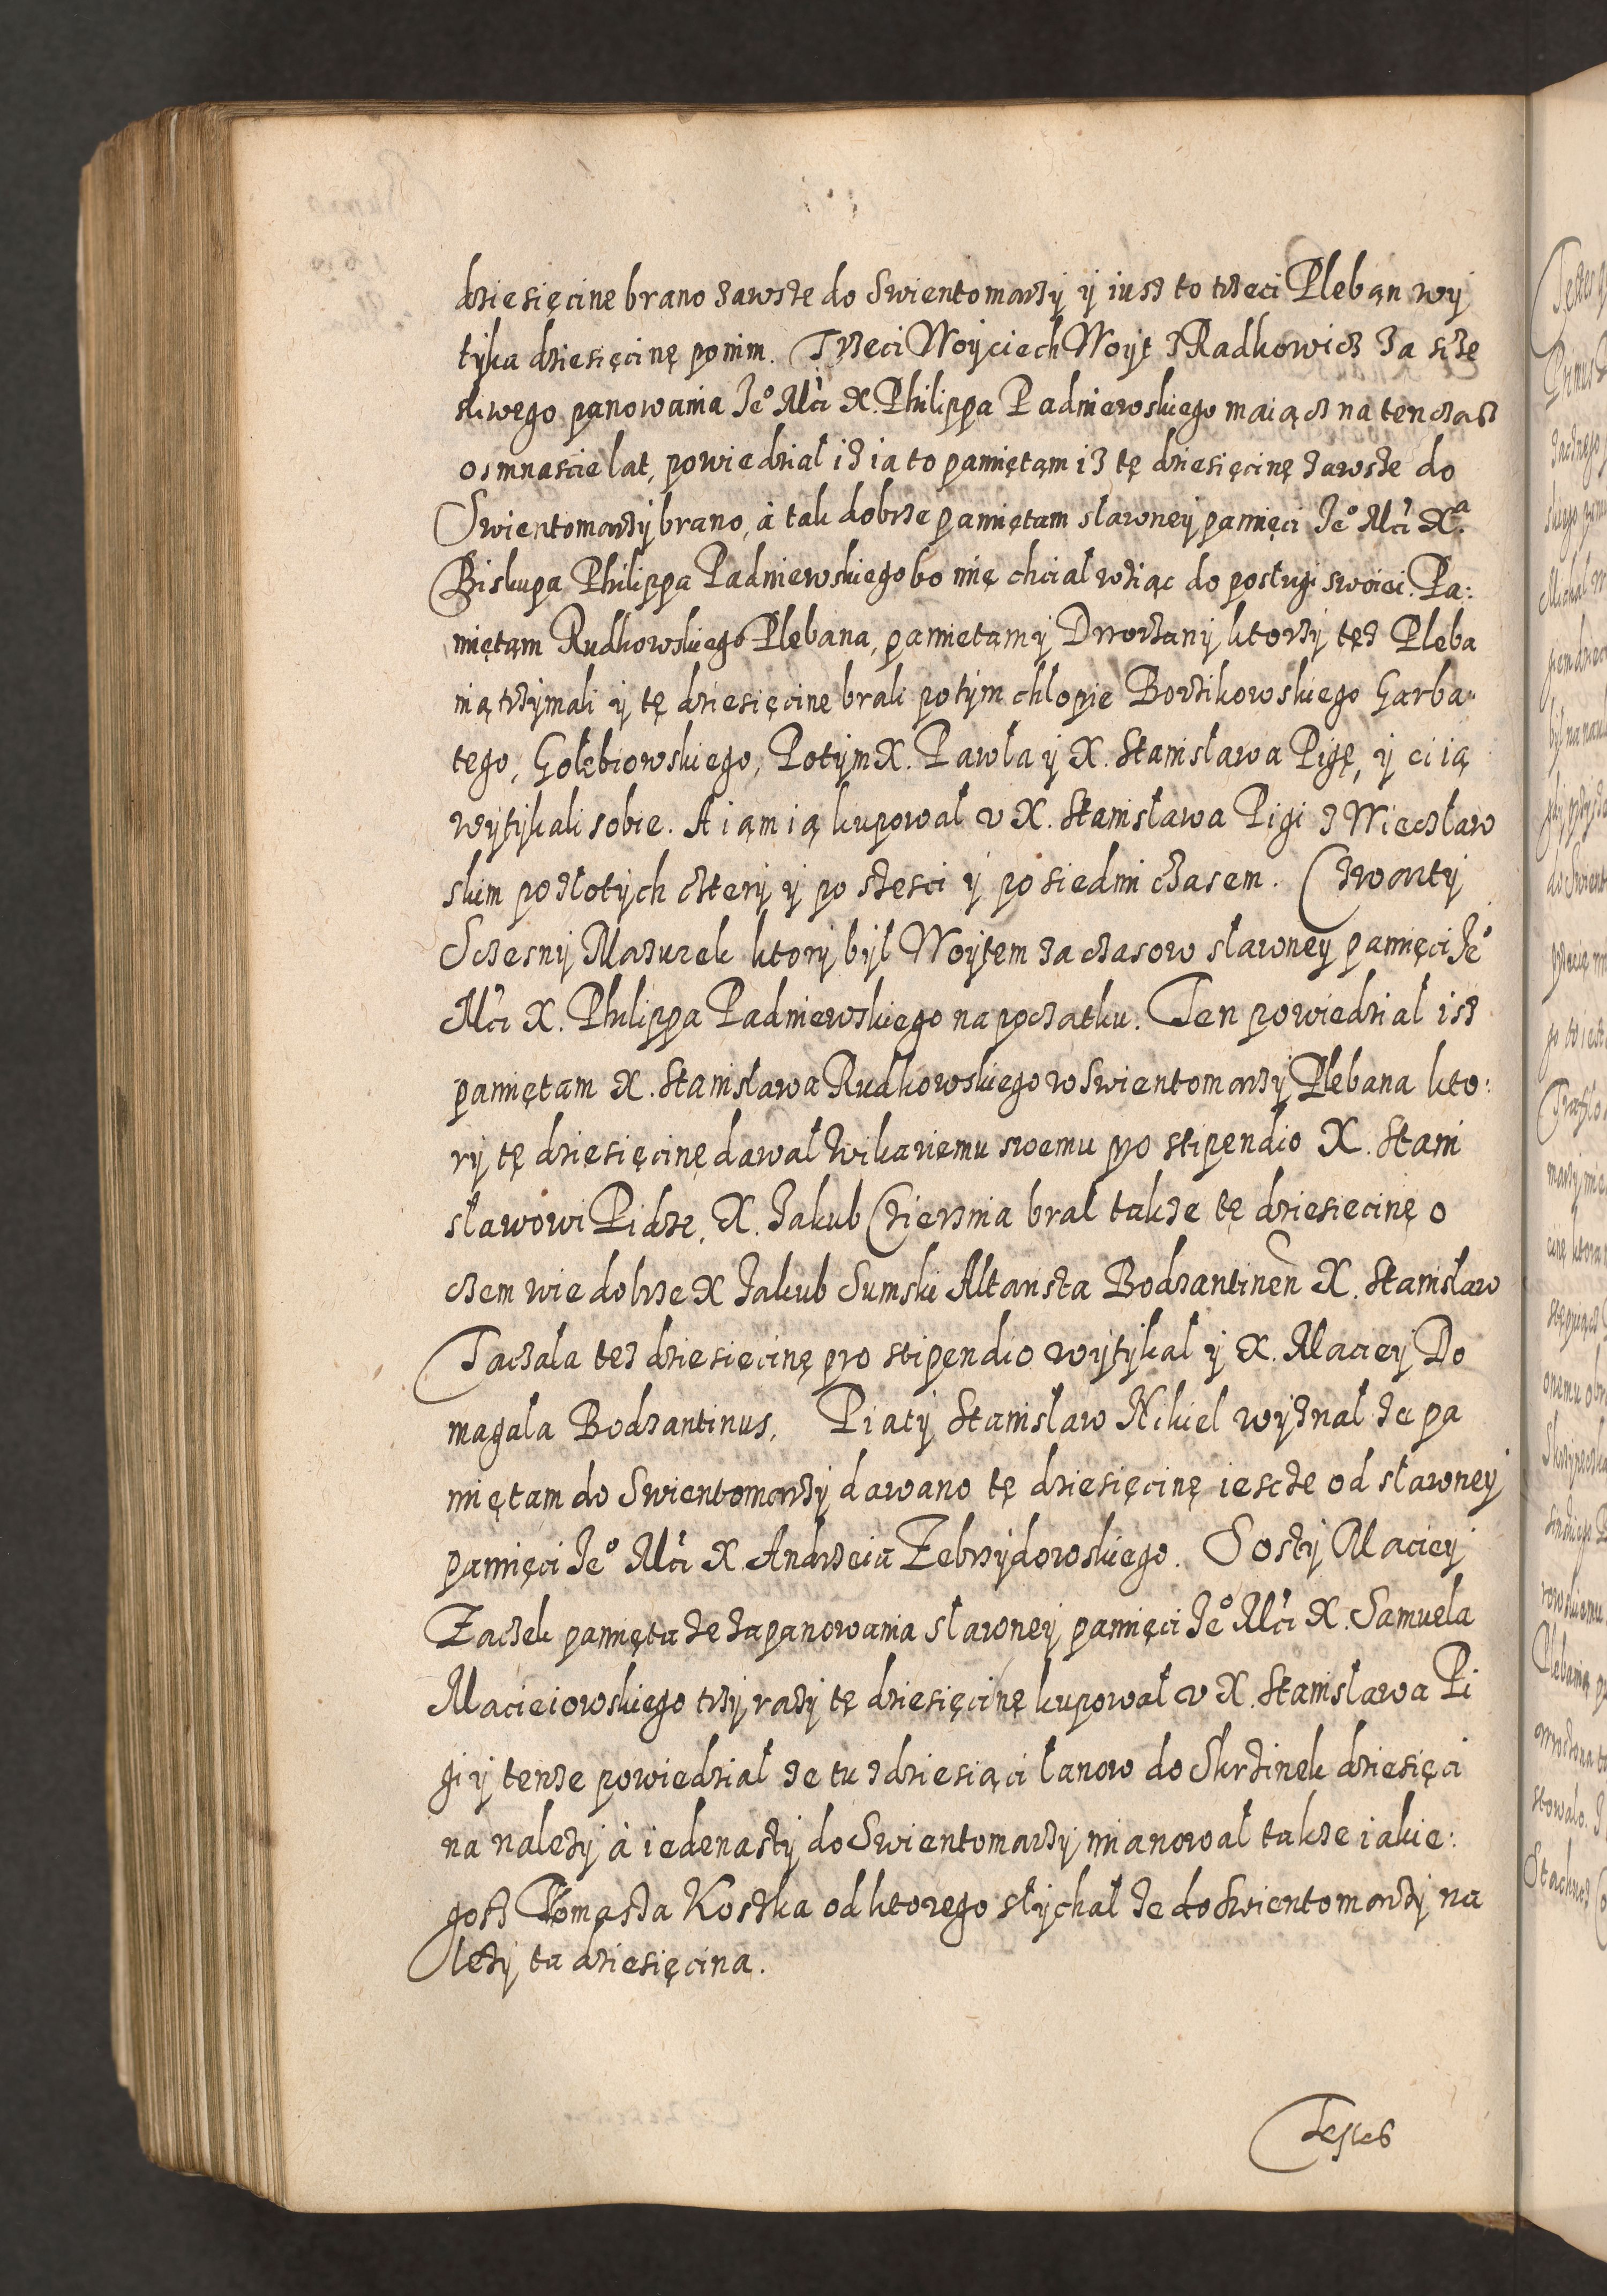 dziesięcine brano zawsze do Swientomarzy y iusz to trzeci Plebąn wy
tyka dziesięcinę ponim. Trzeci Woyciech Woyt z Radkowicz za szczę
sliwego panowania Jeº Mci X. Philippa Padniewskiego maiącz na ten czasz
osmnascie lat, powiedzial iż ia to pamiętąm iż tę dziesięcinę zawsze do
Swientomarzy brano, à tak dobrze pamiętam slawney pamięci Jeº Mci Xª
Biskupa Philippa Padniewskiego bo mię chcial wziąc do posługi swoiei. Pa:
miętąm Rudkowskiego Plebana, pamietąmy Dworzany ktorzy tęż Pleba
nią trzymali y tę dziesięcine brali potym chlopie Borzikowskiego Garba
tego, Gołębiowskiego, Potym X. Pawła y X. Stanisława Pigę, y ci ią
wytykali sobie. A iąm ią kupował v X. Stanisława Pigi z Wieczław
skim po złotych cztery y po szesci y po siedmi czasem. Czwarty
Sczesny Mazurek ktory był Woytem za czasow sławney pamięci Jeº
Mci X. Philippa Padniewskiego na początku. Ten powiedzial isz
pamiętam X. Stanisława Rudkowskiego w Swientomarzy Plebana kto:
ry tę dziesięcinę dawał Wikariemu swemu pro stipendio X. Stani
sławowi Pidze, X. Jakub Czierznia bral takze tę dziesiecinę o
czem wie dobrze X Jakub Sumski Altarista Bodzantinen X. Stanisław
Taczala tez dziesiecinę pro stipendio wytykal y X. Maciey Do
magala Bodzantinus. Piaty Stanisław Nikiel wyznal że pa
miętam do Swientomarzy dawano tę dziesięcinę iescze od sławney
pamięci Jeº Mci X. Andrzeia Zebrzydowskiego. Sosty Maciey
Zaczek pamięta że za panowania sławney pamięci Jeº Mci X. Samuela
Macieiowskiego trzy razy tę dziesięcinę kupował v X. Stanisława Pi
gi y tenze powiedzial ze tu z dziesiąci łanow do Skrzinek dziesięci
na należy à iedenasty do Swientomarzy mianował takze iakie:
gosz Tomasza Koszka od ktorego słychał że do Swientomarzy na
leży ta dziesięcina.
Testes